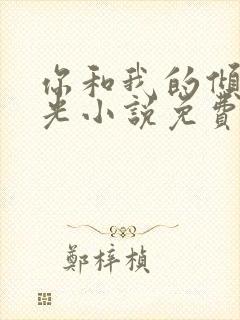 你和我的倾
光小説免費
鄭梓楨